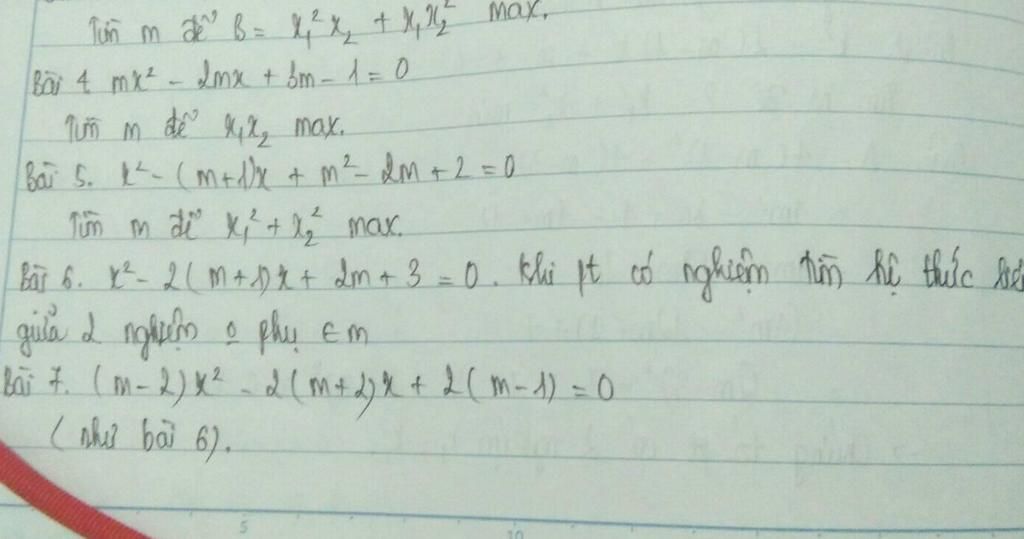 Tìm m để B = x₁²x₂ + x₁x₂² max.
Bài 4. mx² - 2mx + 3m - 1 = 0
Tìm m để x₁x₂ max.
Bài 5. x² - (m+1)x + m² - 2m + 2 = 0
Tìm m để x₁² + x₂² max.
Bài 6. x² - 2(m+1)x + 2m + 3 = 0. Khi pt có nghiệm tìm hệ thức
giữa 2 nghiệm o phụ ∈ m
Bài 7. (m-2)x² - 2(m+2)x + 2(m-1) = 0
(như bài 6).
5
10